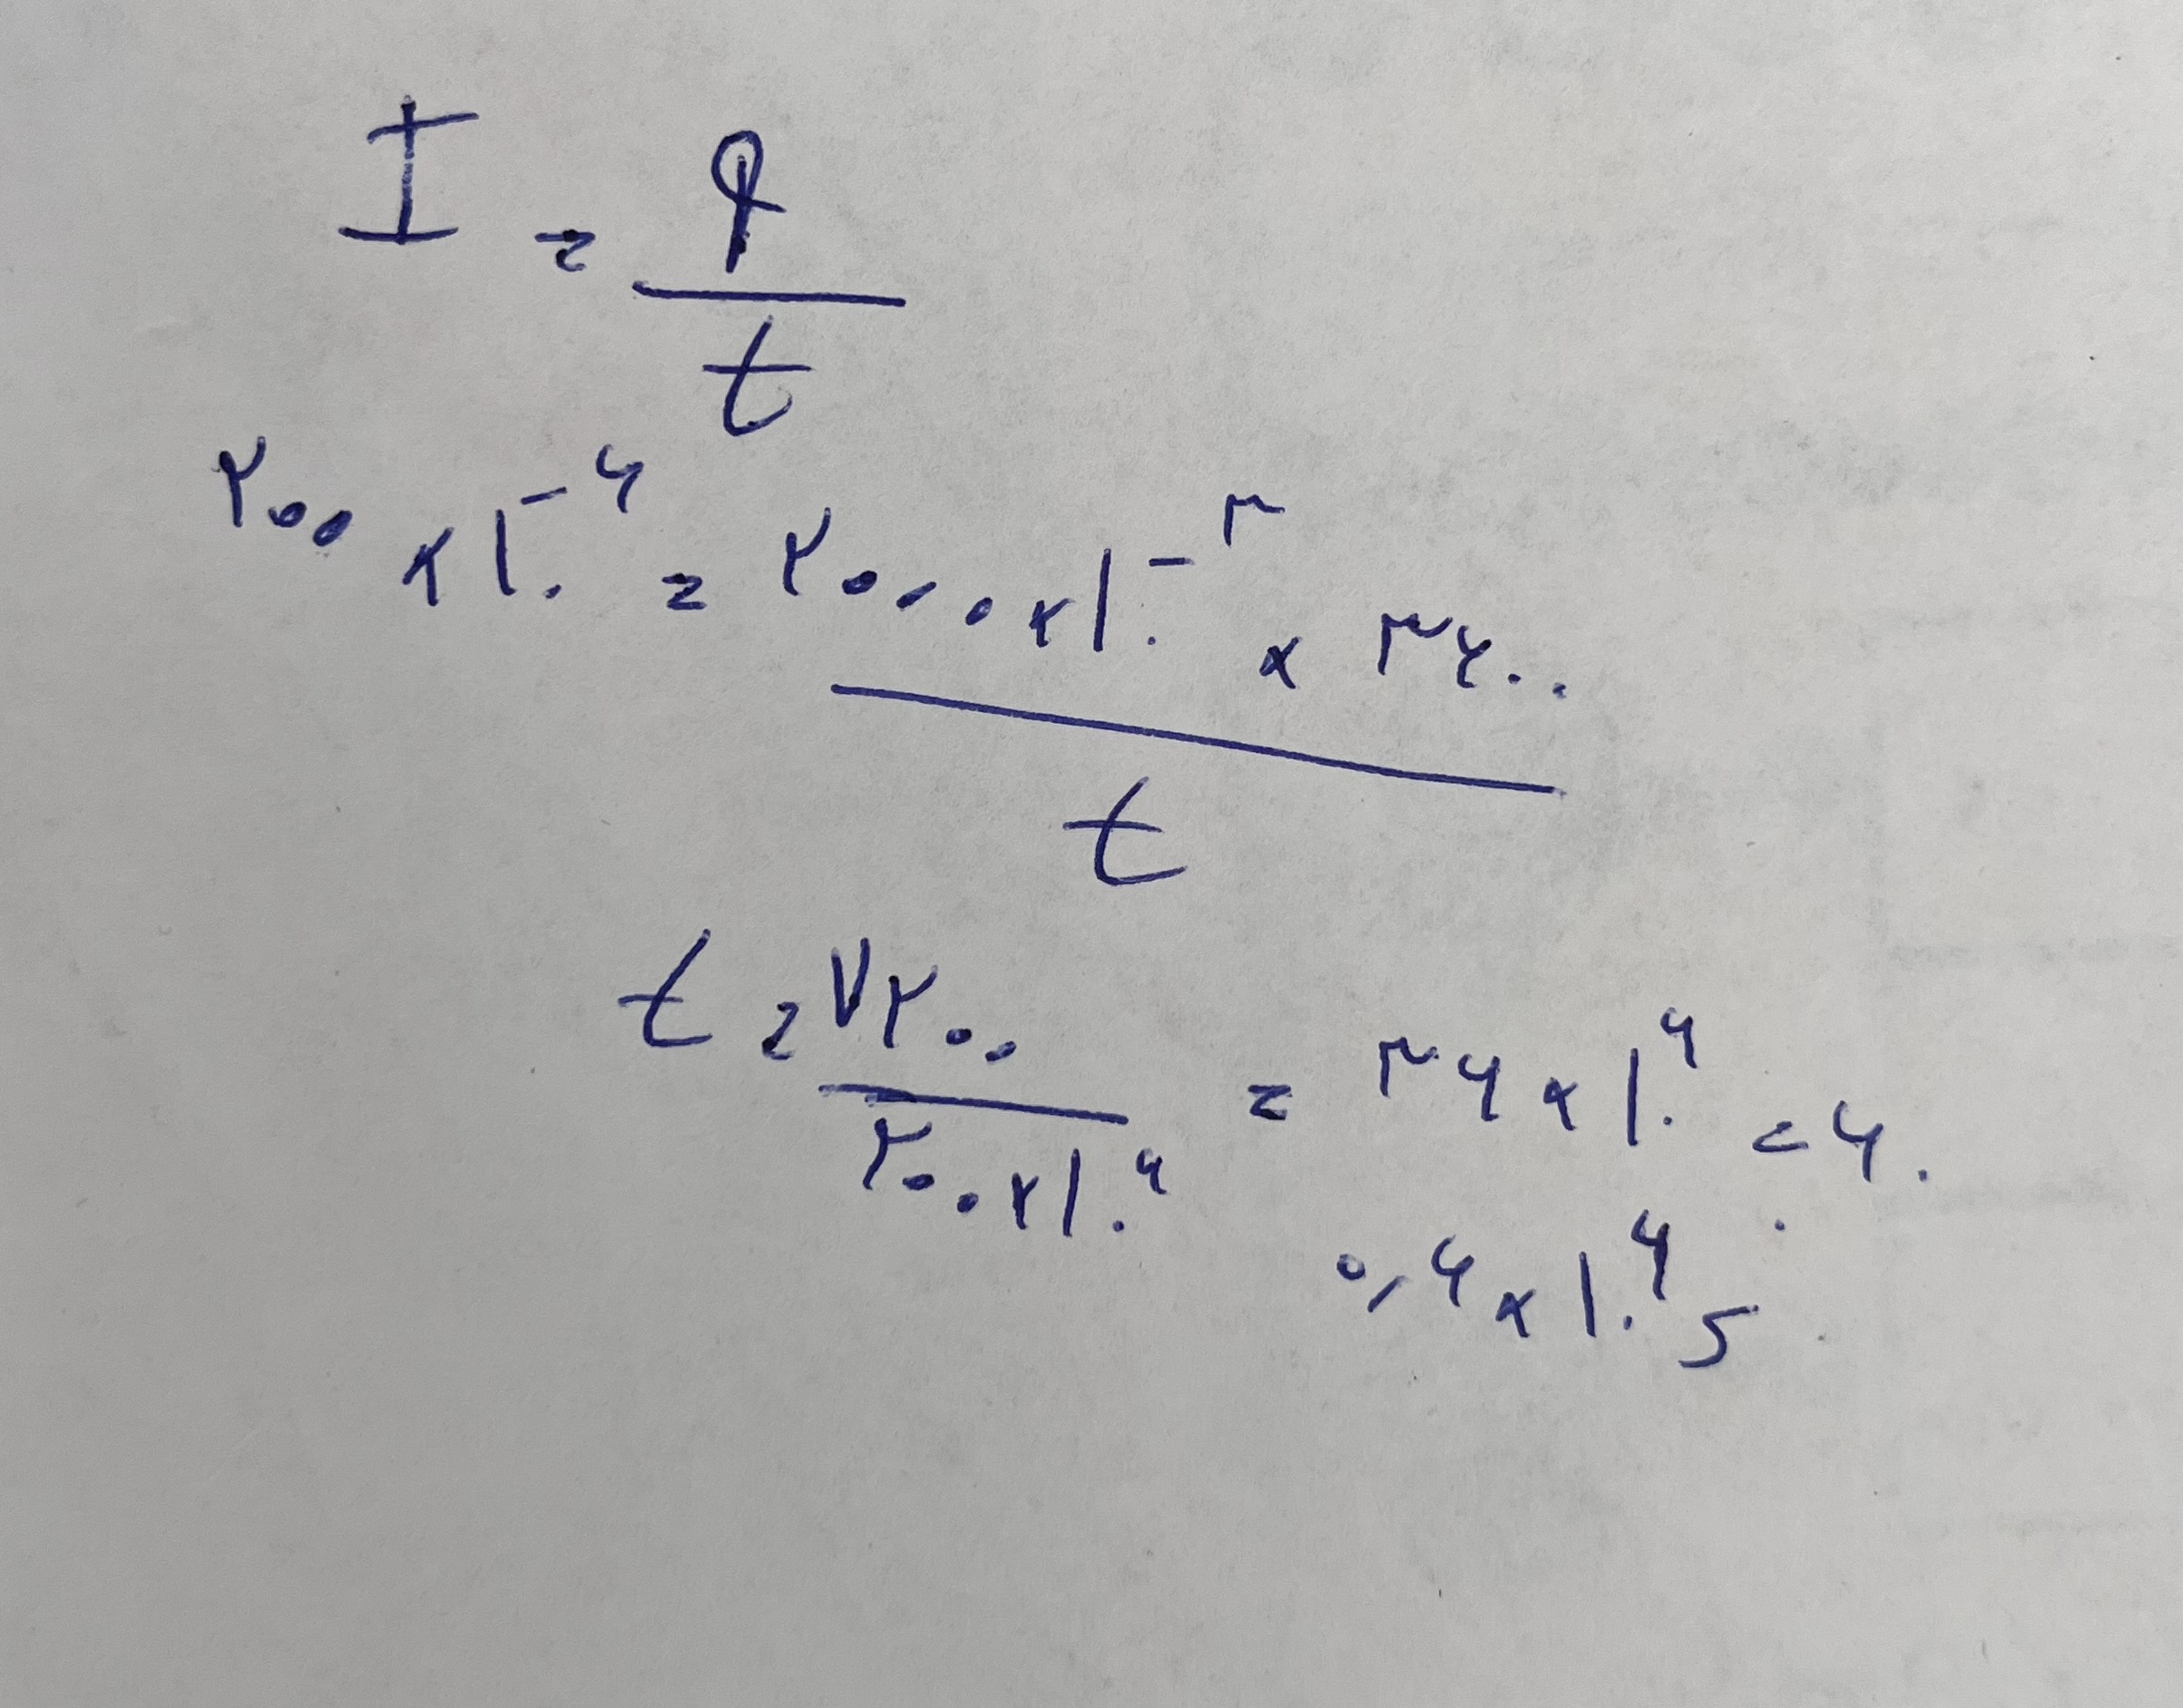 I = q / t
۲۰۰ × ۱۰^-۶ = ۲۰۰۰ × ۱۰^-۳ × ۳۶۰۰ / t
t = ۷۲۰۰ / ۲۰۰ × ۱۰^۶ = ۳۶ × ۱۰^۶ = ۶۰
۰٫۶ × ۱۰^۶ s